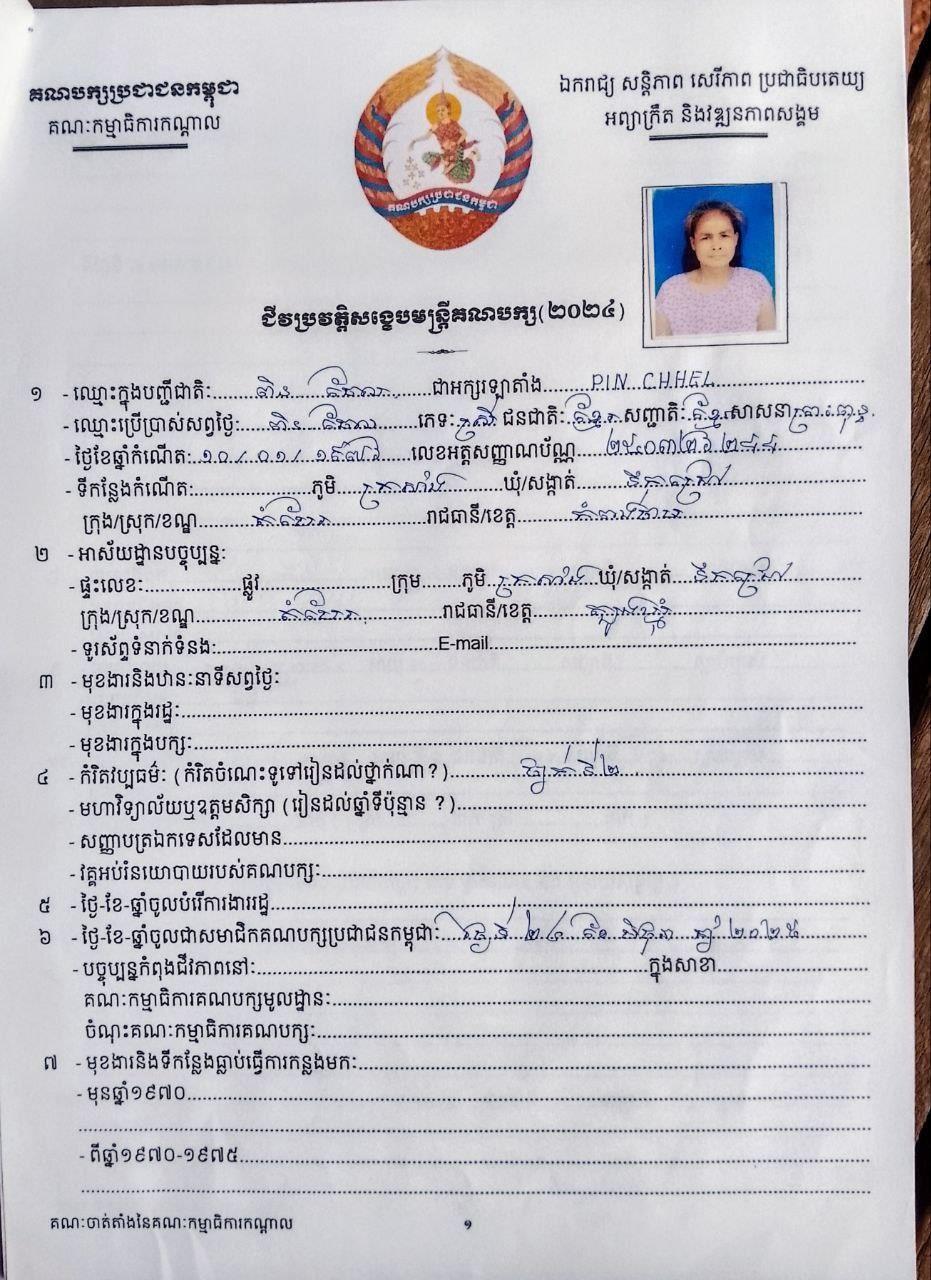 គណបក្សប្រជាជនកម្ពុជា
គណៈកម្មាធិការកណ្តាល
ឯករាជ្យ សន្តិភាព សេរីភាព ប្រជាធិបតេយ្យ
អព្យាក្រឹត និងវឌ្ឍនភាពសង្គម
គណបក្សប្រជាជនកម្ពុជា
ជីវប្រវត្តិសង្ខេបមន្ត្រីគណបក្ស(២០២៤)
១ - ឈ្មោះក្នុងបញ្ជីជាតិៈ ពិន ឆែល ជាអក្សរឡាតាំង PIN CHHEL
- ឈ្មោះប្រើប្រាស់សព្វថ្ងៃៈ ពិន ឆែល ភេទៈ ស្រី ជនជាតិៈ ខ្មែរ សញ្ជាតិៈ ខ្មែរ សាសនា ព្រះពុទ្ធ
- ថ្ងៃខែឆ្នាំកំណើត: ១០/០១/១៩៧៦ លេខអត្តសញ្ញាណប័ណ្ណ
- ទីកន្លែងកំណើត: ភូមិ ឃុំ/សង្កាត់
ក្រុង/ស្រុក/ខណ្ឌ តំបែរ រាជធានី/ខេត្ត កំពង់ចាម
២ - អាស័យដ្ឋានបច្ចុប្បន្នៈ
- ផ្ទះលេខៈ ផ្លូវ ក្រុម ភូមិ ឃុំ/សង្កាត់
ក្រុង/ស្រុក/ខណ្ឌ តំបែរ រាជធានី/ខេត្ត ត្បូងឃ្មុំ
- ទូរស័ព្ទទំនាក់ទំនង: E-mail
៣ - មុខងារនិងឋានៈនាទីសព្វថ្ងៃៈ
- មុខងារក្នុងរដ្ឋៈ
- មុខងារក្នុងបក្សៈ
៤ - កំរិតវប្បធម៌ៈ (កំរិតចំណេះទូទៅរៀនដល់ថ្នាក់ណា?) ថ្នាក់ទី២
- មហាវិទ្យាល័យឬឧត្តមសិក្សា (រៀនដល់ឆ្នាំទីប៉ុន្មាន ?)
- សញ្ញាបត្រឯកទេសដែលមាន
- វគ្គអប់រំនយោបាយរបស់គណបក្សៈ
៥ - ថ្ងៃ-ខែ-ឆ្នាំចូលបំរើការងាររដ្ឋ
៦ - ថ្ងៃ-ខែ-ឆ្នាំចូលជាសមាជិកគណបក្សប្រជាជនកម្ពុជាៈ ថ្ងៃទី ២៤ ខែ មិថុនា ឆ្នាំ ២០២៥
- បច្ចុប្បន្នកំពុងជីវភាពនៅៈ ក្នុងសាខា
គណៈកម្មាធិការគណបក្សមូលដ្ឋានៈ
ចំណុះគណៈកម្មាធិការគណបក្សៈ
៧ - មុខងារនិងទីកន្លែងធ្លាប់ធ្វើការកន្លងមកៈ
- មុនឆ្នាំ១៩៧០
- ពីឆ្នាំ១៩៧០-១៩៧៥
គណៈចាត់តាំងនៃគណៈកម្មាធិការកណ្តាល ១